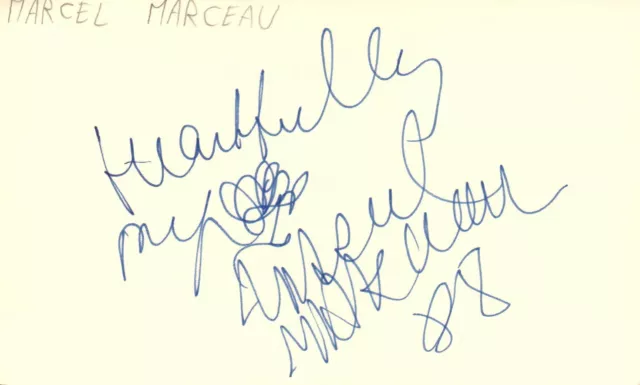 MARCEL MARCEAU
Heartfully
Marcel
Marceau
88